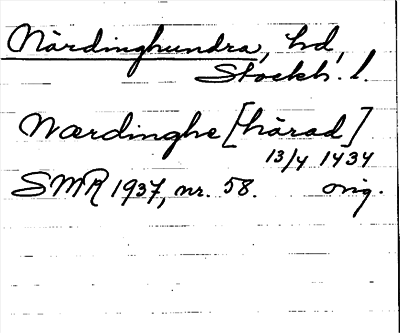 Närdinghundra, hd,
Stockh. l.
Nærdinghe [härad]
13/4 1434
SMR 1937, nr. 58. orig.